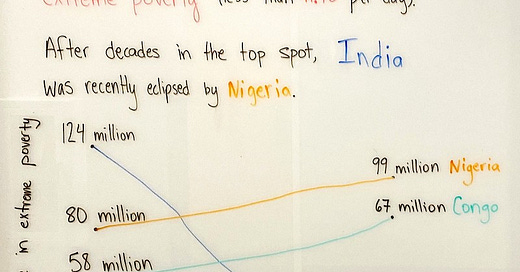 extreme poverty (less than per day).
After decades in the top spot, India
was recently eclipsed by Nigeria.
124 million
99 million Nigeria
67 million Congo
80 million
58 million
in extreme poverty